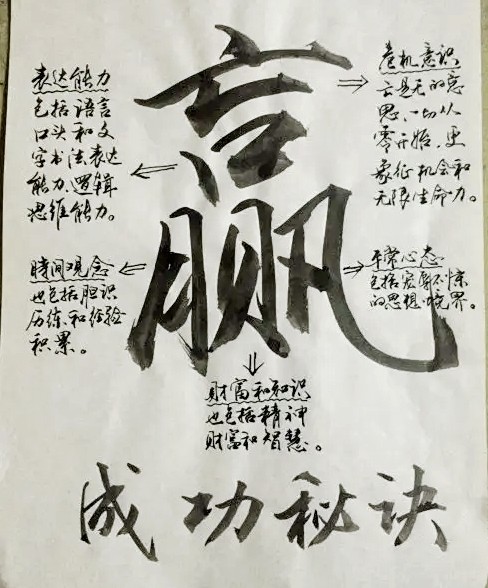 赢
表达能力
包括语言
口头和文
字书法表达
能力、逻辑
思维能力。
危机意识
亡是无的意
思,一切从
零开始,更
象征机会和
无限生命力。
時间观念
也包括胆识
历练和经验
积累。
平常心态
包括宠辱不惊
的思想境界。
财富和知识
也包括精神
财富和智慧。
成功秘诀